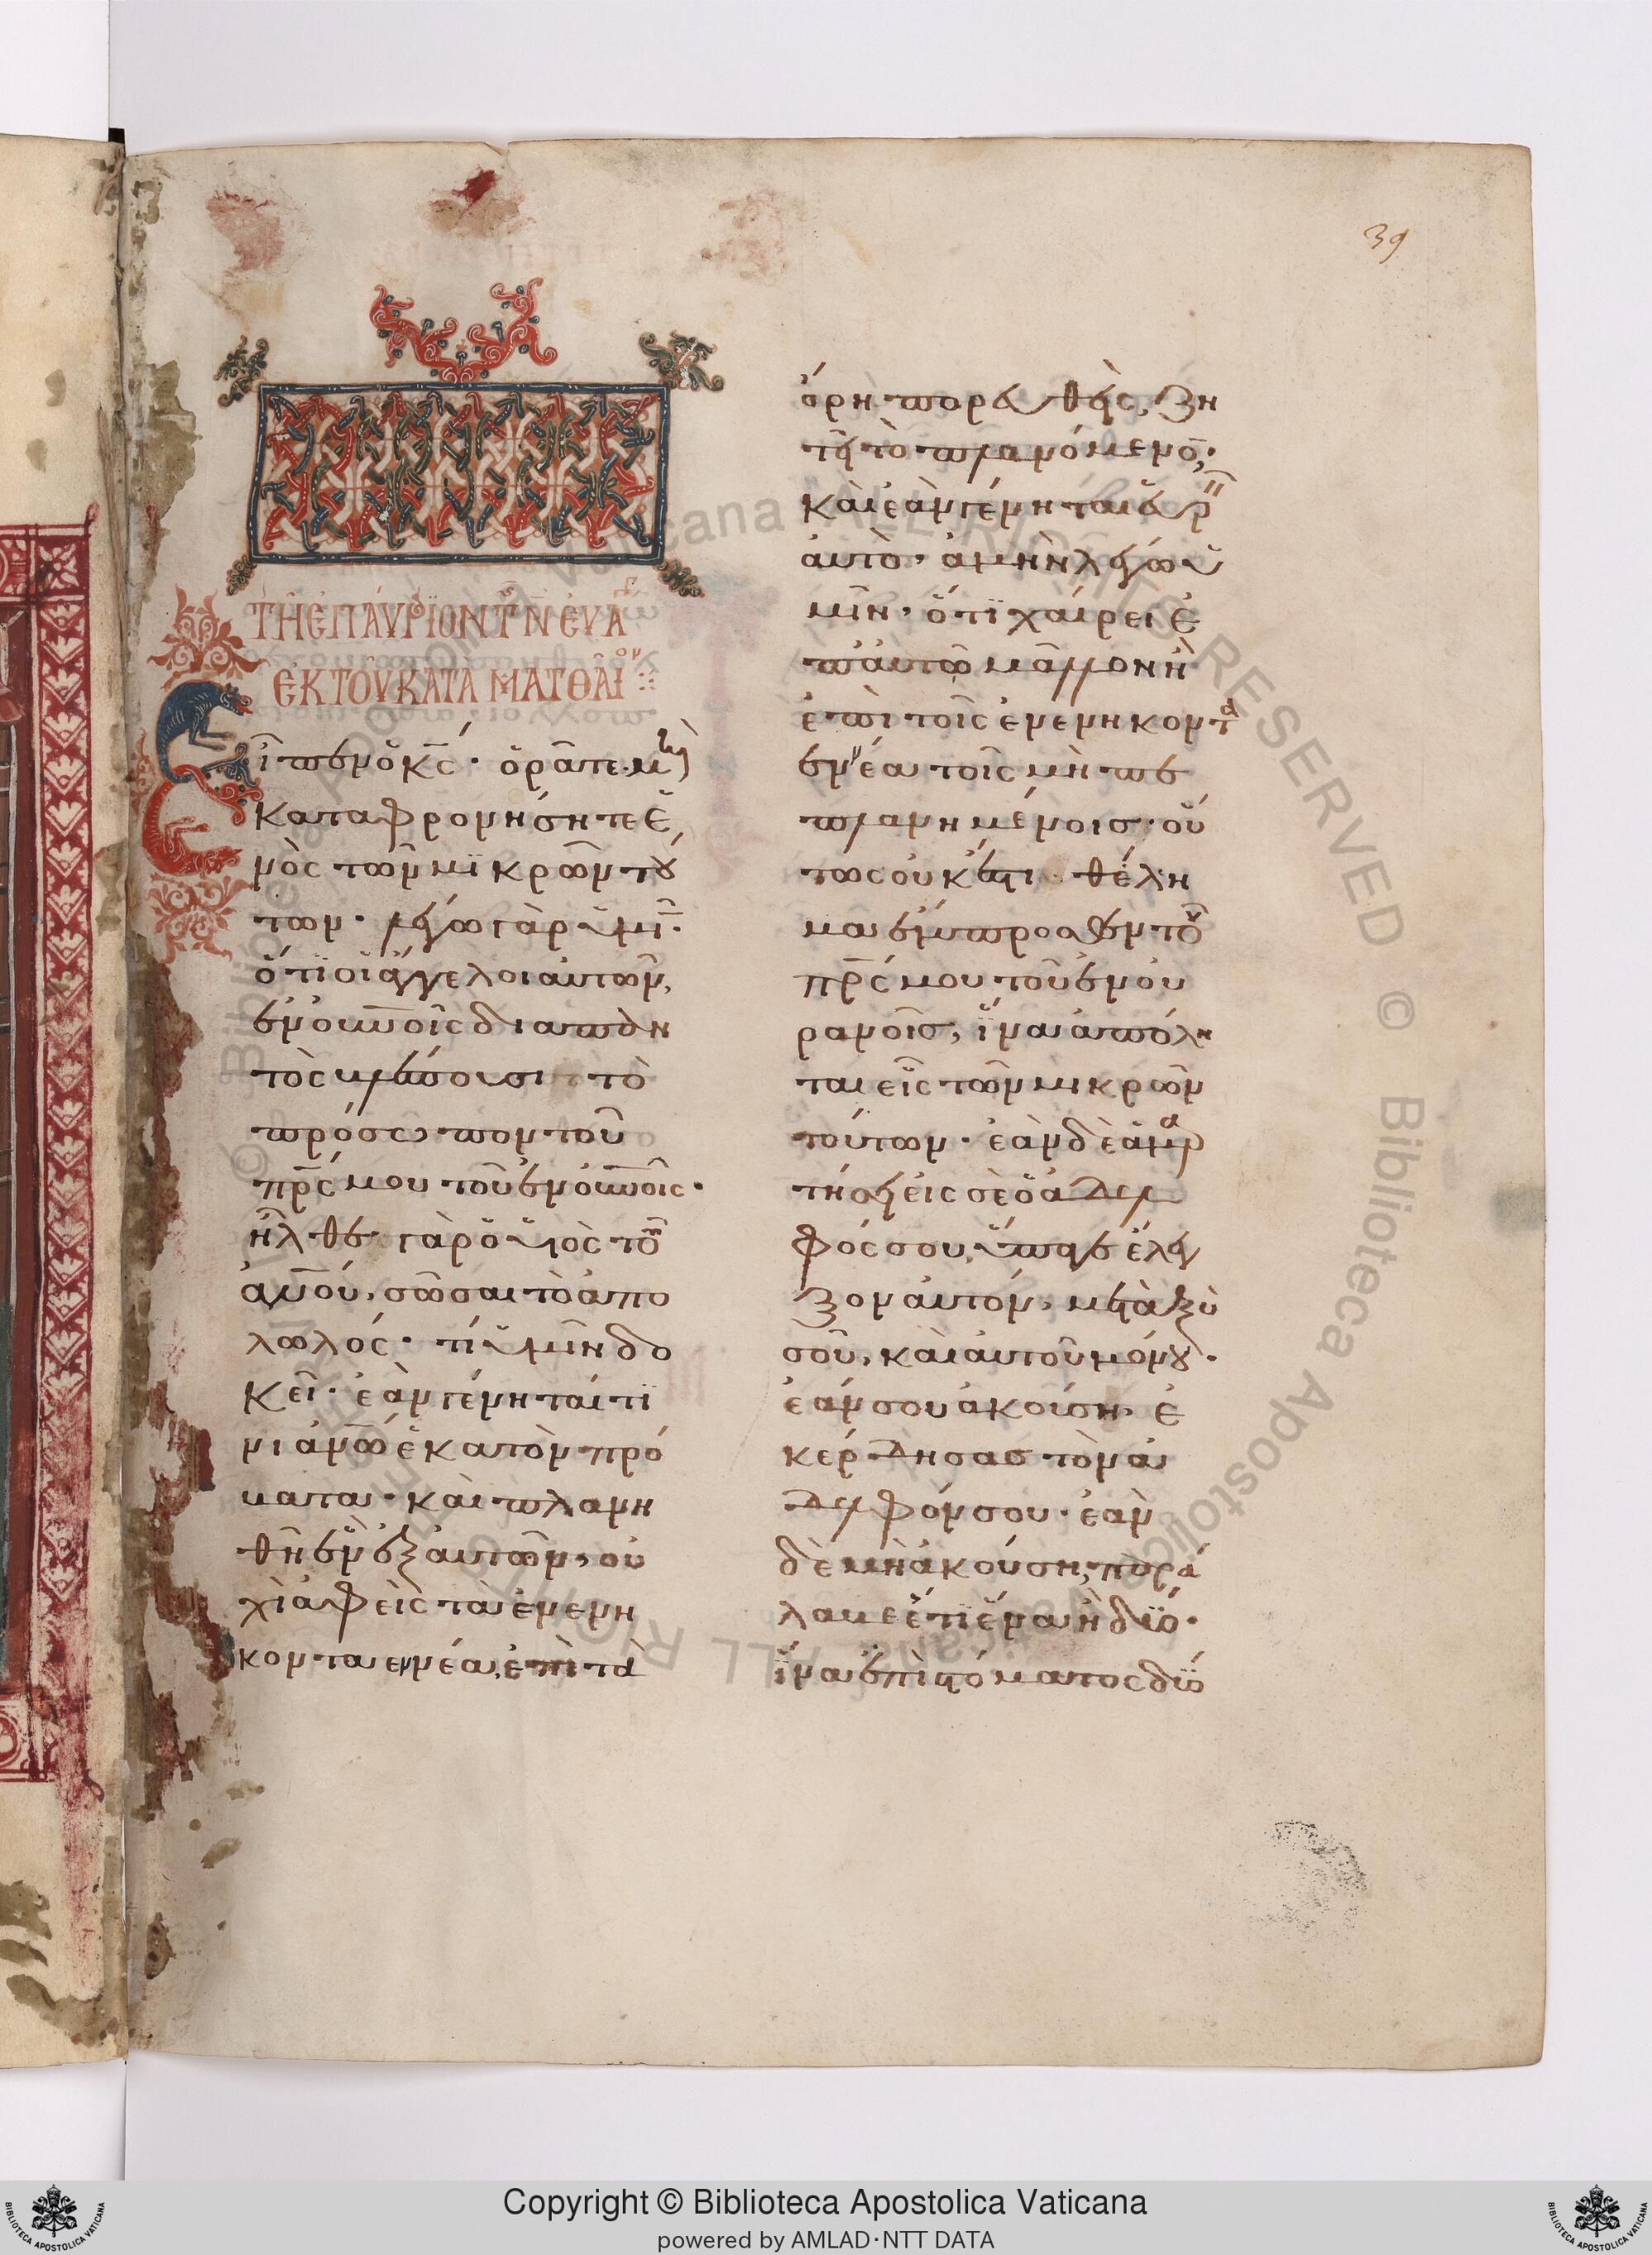 39
ΤΗ ΕΠΑΥΡΙΟΝ Τ Ν ΕΥΑ
ΕΚ ΤΟΥ ΚΑΤΑ ΜΑΤΘΑΙ
Εἶπεν ὁ κ̅ς̅· ὁρᾶτε μὴ
καταφρονήσητε ἑ
νὸς τῶν μικρῶν τού
των· λέγω γὰρ ὑμῖ·
ὅτι οἱ ἄγγελοι αὐτῶν,
ἐν ο̅υ̅ν̅οῖς διαπαν
τὸς βλέπουσι τὸ
πρόσωπον τοῦ
π̅ρ̅ς̅ μου τοῦ ἐν ο̅υ̅ν̅οις·
ἦλθε γὰρ ὁ υἱὸς τοῦ
α̅ν̅ο̅υ̅, σῶσαι τὸ ἀπο
λωλός· τί ὑμῖν δο
κεῖ· ἐὰν γένηταί τι
νι α̅ν̅ω̅ ἑκατὸν πρό
βατα· καὶ πλανη
θῆ ἓν ἐξ αὐτῶν, οὐ
χὶ ἀφεὶς τὰ ἐνενη
κονταεννέα, ἐπὶ τὰ
ὄρη πορευθεὶς, ζη
τεῖ τὸ πλανόμενο̅·
καὶ ἐὰν γένηται εὑρεῖ̅
αὐτὸ· ἀμὴν λέγω ὑ
μῖν· ὅτι χαίρει ἐ
π' αὐτῶ μᾶλλον ἢ
ἐπὶ τοῖς ἐνενηκοντα
εννέα τοῖς μὴ πε
πλανημένοις· οὕ
τως οὐκ ἔστι θέλη
μα ἔμπροσθεν τοῦ
π̅ρ̅ς̅ μου τοῦ ἐν οὐ
ρανοῖς, ἵνα ἀπόλη
ται εἷς τῶν μικρῶν
τούτων· ἐὰν δὲ ἁμαρ
τήσῃ εἰς σὲ ὁ ἀδελ
φός σου, ὕπαγε ἔλεγ
ξον αὐτόν, μεταξὺ
σοῦ, καὶ αὐτοῦ μόνου·
ἐάν σου ἀκούση, ἐ
κέρδησας τὸν ἀ
δελφόν σου· ἐὰν
δὲ μὴ ἀκούση, παρά
λαβε ἔτι ἕνα ἢ δύο·
ἵνα ἐπὶ στόματος δύο
© Biblioteca Apostolica Vaticana ALL RIGHTS RESERVED © Biblioteca Apostolica Vaticana ALL RIGHTS RESERVED
BIBLIOTECA APOSTOLICA VATICANA
Copyright © Biblioteca Apostolica Vaticana
powered by AMLAD·NTT DATA
BIBLIOTECA APOSTOLICA VATICANA